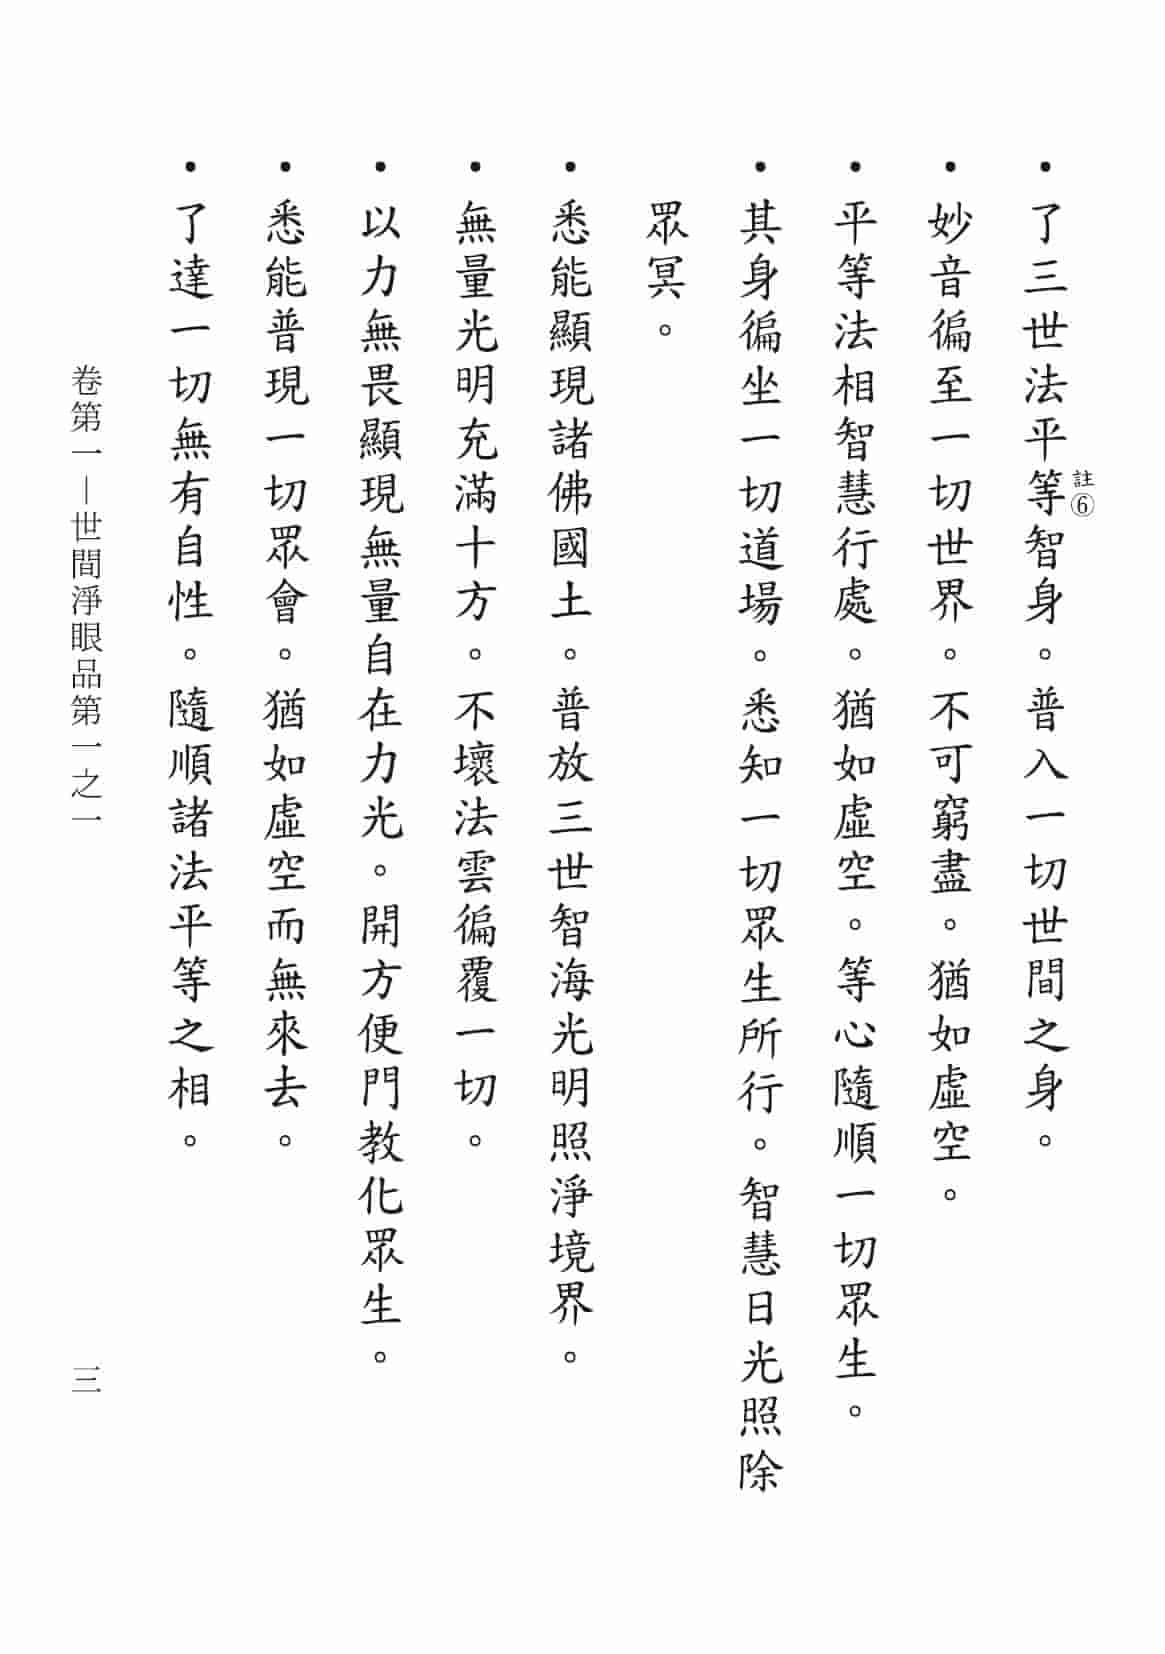 •了三世法平等智身。普入一切世間之身。
註⑥
•妙音徧至一切世界。不可窮盡。猶如虛空。
•平等法相智慧行處。猶如虛空。等心隨順一切眾生。
•其身徧坐一切道場。悉知一切眾生所行。智慧日光照除
眾冥。
•悉能顯現諸佛國土。普放三世智海光明照淨境界。
•無量光明充滿十方。不壞法雲徧覆一切。
•以力無畏顯現無量自在力光。開方便門教化眾生。
•悉能普現一切眾會。猶如虛空而無來去。
•了達一切無有自性。隨順諸法平等之相。
卷第一—世間淨眼品第一之一
三